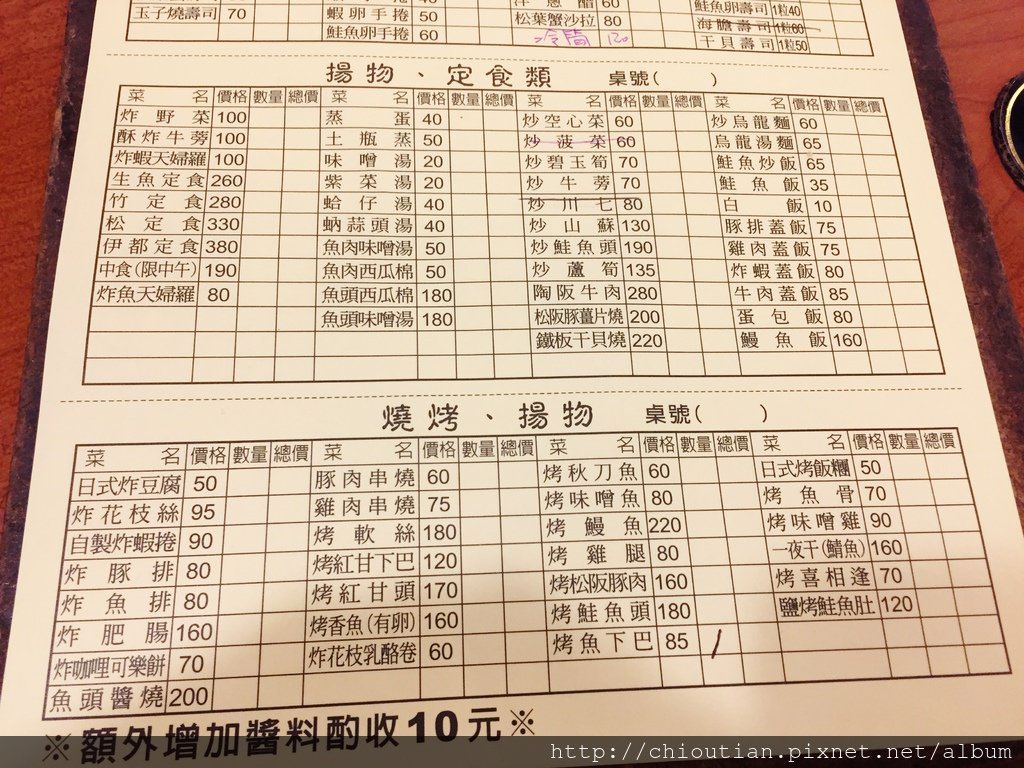 玉子燒壽司 70 蝦卵手捲 50 松葉蟹沙拉 80 鮭魚卵壽司 1粒40
鮭魚卵手捲 60 海膽壽司 1粒60
干貝壽司 1粒50
揚物、定食類 桌號( )
菜 名 價格 數量 總價 菜 名 價格 數量 總價 菜 名 價格 數量 總價 菜 名 價格 數量 總價
炸野菜 100 蒸蛋 40 炒空心菜 60 炒烏龍麵 60
酥炸牛蒡 100 土瓶蒸 50 炒菠菜 60 烏龍湯麵 65
炸蝦天婦羅 100 味噌湯 20 炒碧玉筍 70 鮭魚炒飯 65
生魚定食 260 紫菜湯 20 炒牛蒡 70 鮭魚飯 35
竹定食 280 蛤仔湯 40 炒川七 80 白飯 10
松定食 330 蚋蒜頭湯 40 炒山蘇 130 豚排蓋飯 75
伊都定食 380 魚肉味噌湯 50 炒鮭魚頭 190 雞肉蓋飯 75
中食(限中午) 190 魚肉西瓜棉 50 炒蘆筍 135 炸蝦蓋飯 80
炸魚天婦羅 80 魚頭西瓜棉 180 陶阪牛肉 280 牛肉蓋飯 85
魚頭味噌湯 180 松阪豚薑片燒 200 蛋包飯 80
鐵板干貝燒 220 鰻魚飯 160
燒烤、揚物 桌號( )
菜 名 價格 數量 總價 菜 名 價格 數量 總價 菜 名 價格 數量 總價 菜 名 價格 數量 總價
日式炸豆腐 50 豚肉串燒 60 烤秋刀魚 60 日式烤飯糰 50
炸花枝絲 95 雞肉串燒 75 烤味噌魚 80 烤魚骨 70
自製炸蝦捲 90 烤軟絲 180 烤鰻魚 220 烤味噌雞 90
炸豚排 80 烤紅甘下巴 120 烤雞腿 80 一夜干(鯖魚) 160
炸魚排 80 烤紅甘頭 170 烤松阪豚肉 160 烤喜相逢 70
炸肥腸 160 烤香魚(有卵) 160 烤鮭魚頭 180 鹽烤鮭魚肚 120
炸咖哩可樂餅 70 炸花枝乳酪卷 60 烤魚下巴 85 /
魚頭醬燒 200
※額外增加醬料酌收10元※
http://chioutian.pixnet.net/album